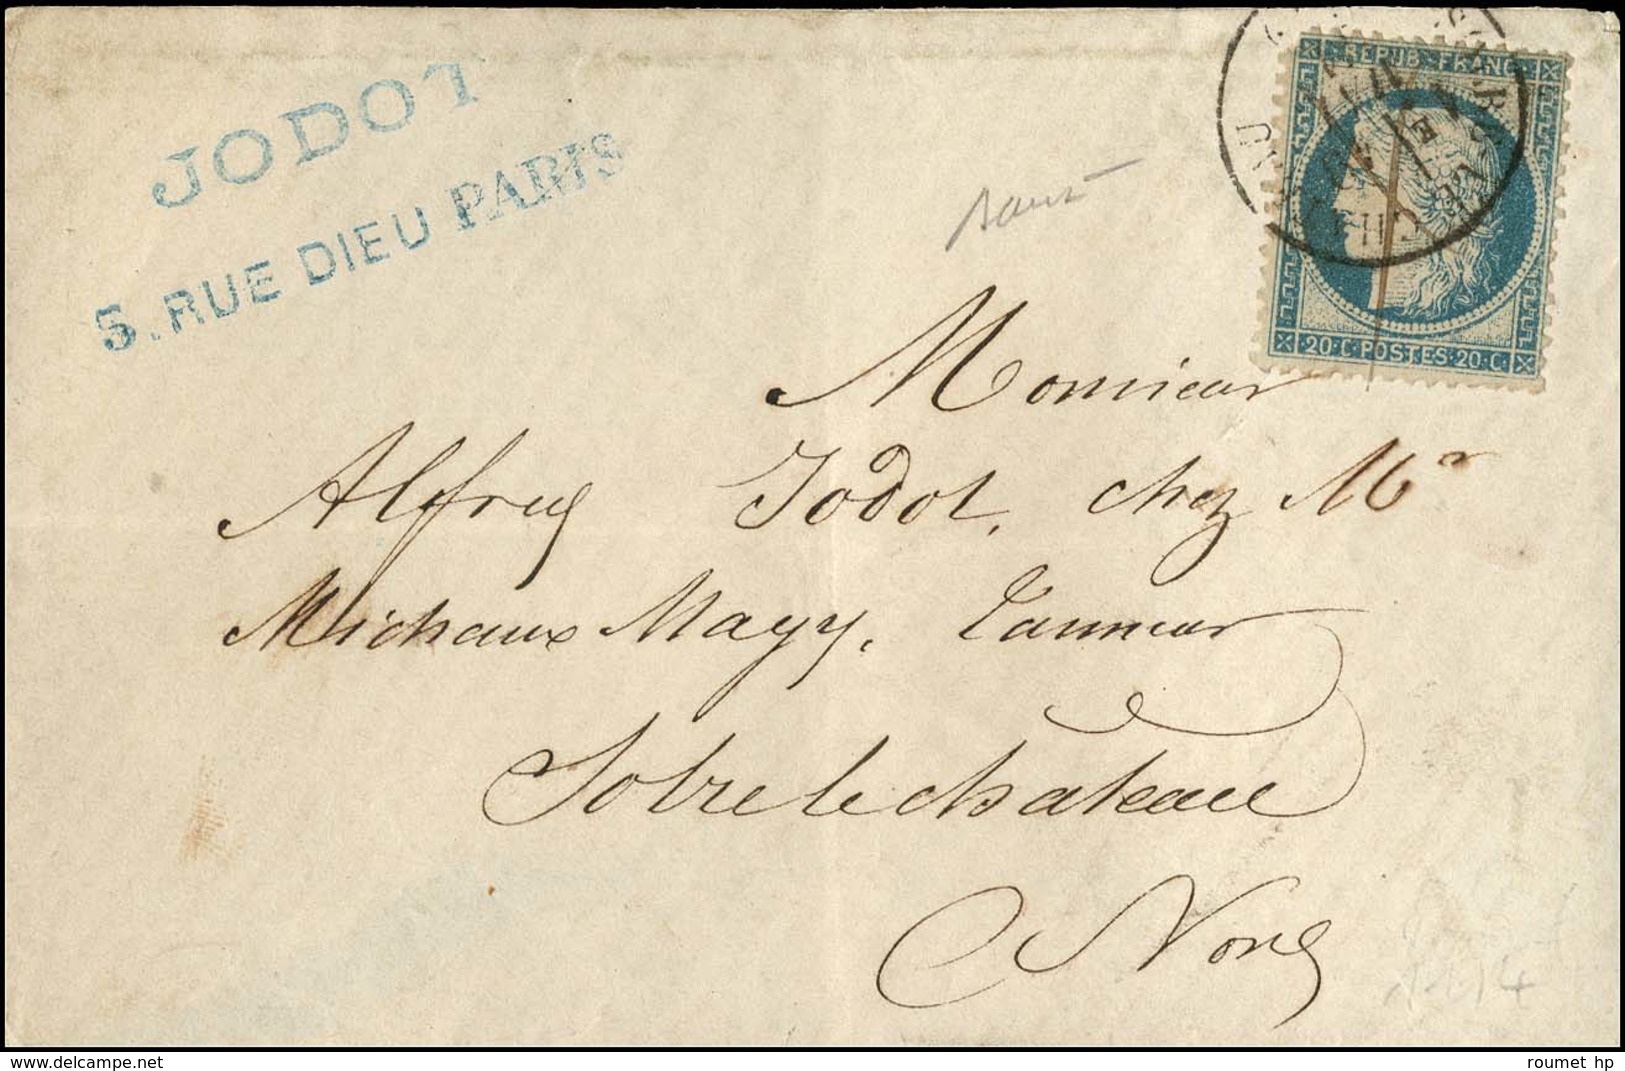 JODOT
5. RUE DIEU PARIS
REPUB. FRANC
20·C·POSTES·20·C.
Monsieur
Alfred Jodot, chez Mr
Michaux Magy, Tanneur
Solre le château
Nord
1114
roumet hp